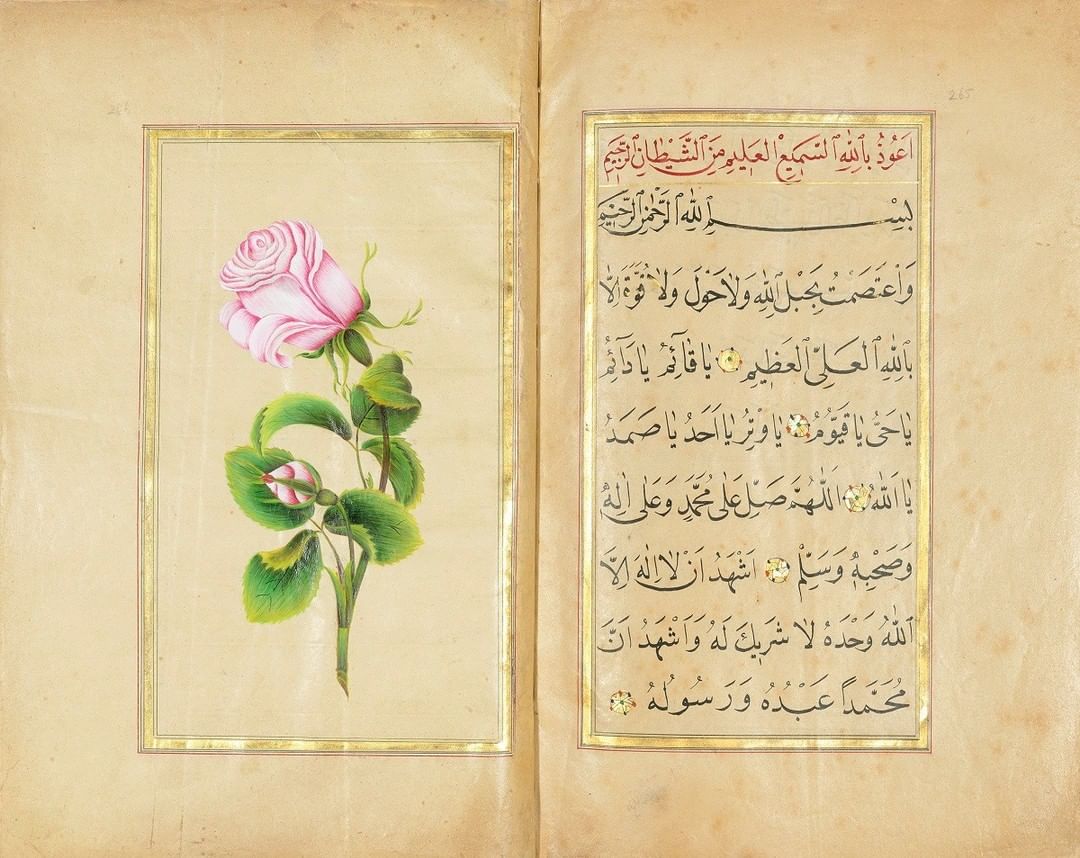 اَعُوذُ بِاللّٰهِ السَّمِيعِ الْعَلِيمِ مِنَ الشَّيْطَانِ الرَّجِيمِ
بِسْمِ اللّٰهِ الرَّحْمٰنِ الرَّحِيمِ
وَاعْتَصَمْتُ بِحَبْلِ اللّٰهِ وَلَا حَوْلَ وَلَا قُوَّةَ اِلَّا
بِاللّٰهِ الْعَلِىِّ الْعَظِيمِ يَا قَائِمُ يَا دَآئِمُ
يَا حَىُّ يَا قَيُّومُ يَا وِتْرُ يَا اَحَدُ يَا صَمَدُ
يَا اَللّٰهُ اَللّٰهُمَّ صَلِّ عَلٰى مُحَمَّدٍ وَعَلٰى اٰلِهِ
وَصَحْبِهِ وَسَلِّمْ اَشْهَدُ اَنْ لَا اِلٰهَ اِلَّا
اللّٰهُ وَحْدَهُ لَا شَرِيكَ لَهُ وَاَشْهَدُ اَنَّ
مُحَمَّدًا عَبْدُهُ وَرَسُولُهُ
265